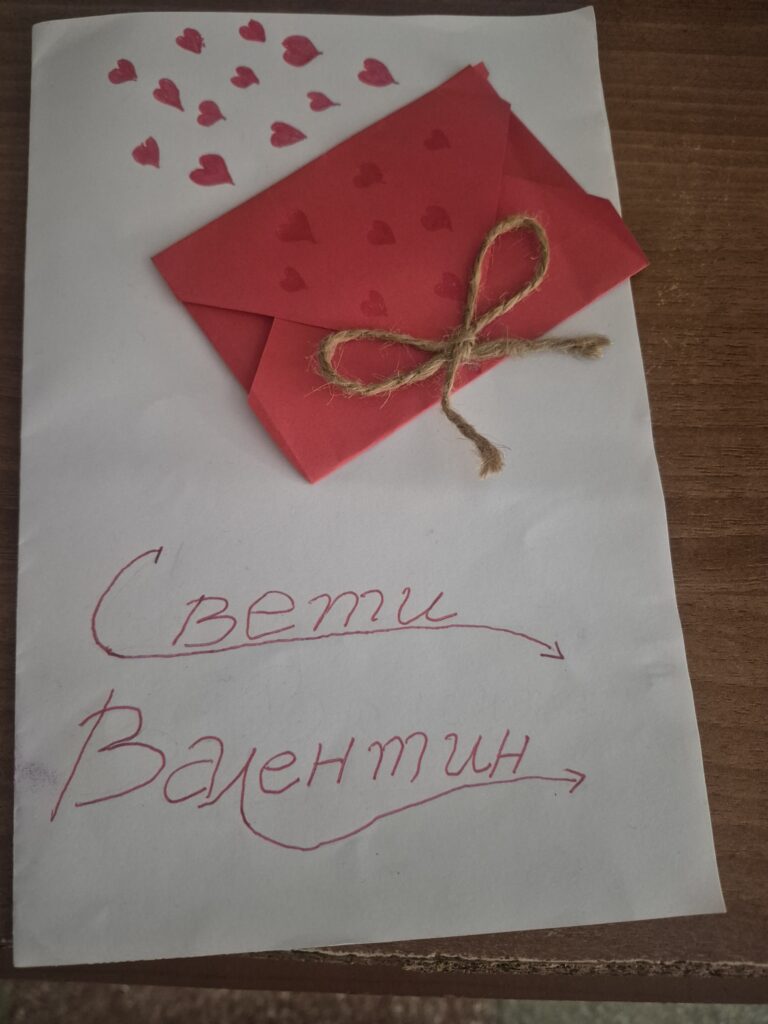 Свети
Валентин